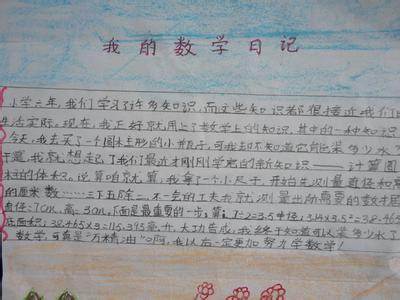 我的数学日记
小学六年,我们学习了许多知识,而这些知识都很接近我们的
生活实际。现在,我正好就用上了数学上的知识,其中的一种知识
今天,我去买了一个圆柱形的小瓶子,可我却不知道它能装多少水了
于是,我就想起了我们最近才刚刚学完的新知识——计算圆
柱的体积。说算咱就算,我拿了一个小尺子,开始先测量直径和高
的厘米数……三下五除二,不一会的工夫我就测量出所需要的数据
直径:7cm,高:3cm,下面是最重要的一步:算:7÷2=3.5半径;3.14×3.5²=38.465
底面积;38.465×3=115.395毫升,大功告成,我终于知道可以装多少水了
数学,可真是“万精油”啊,我以后一定更加努力学数学!